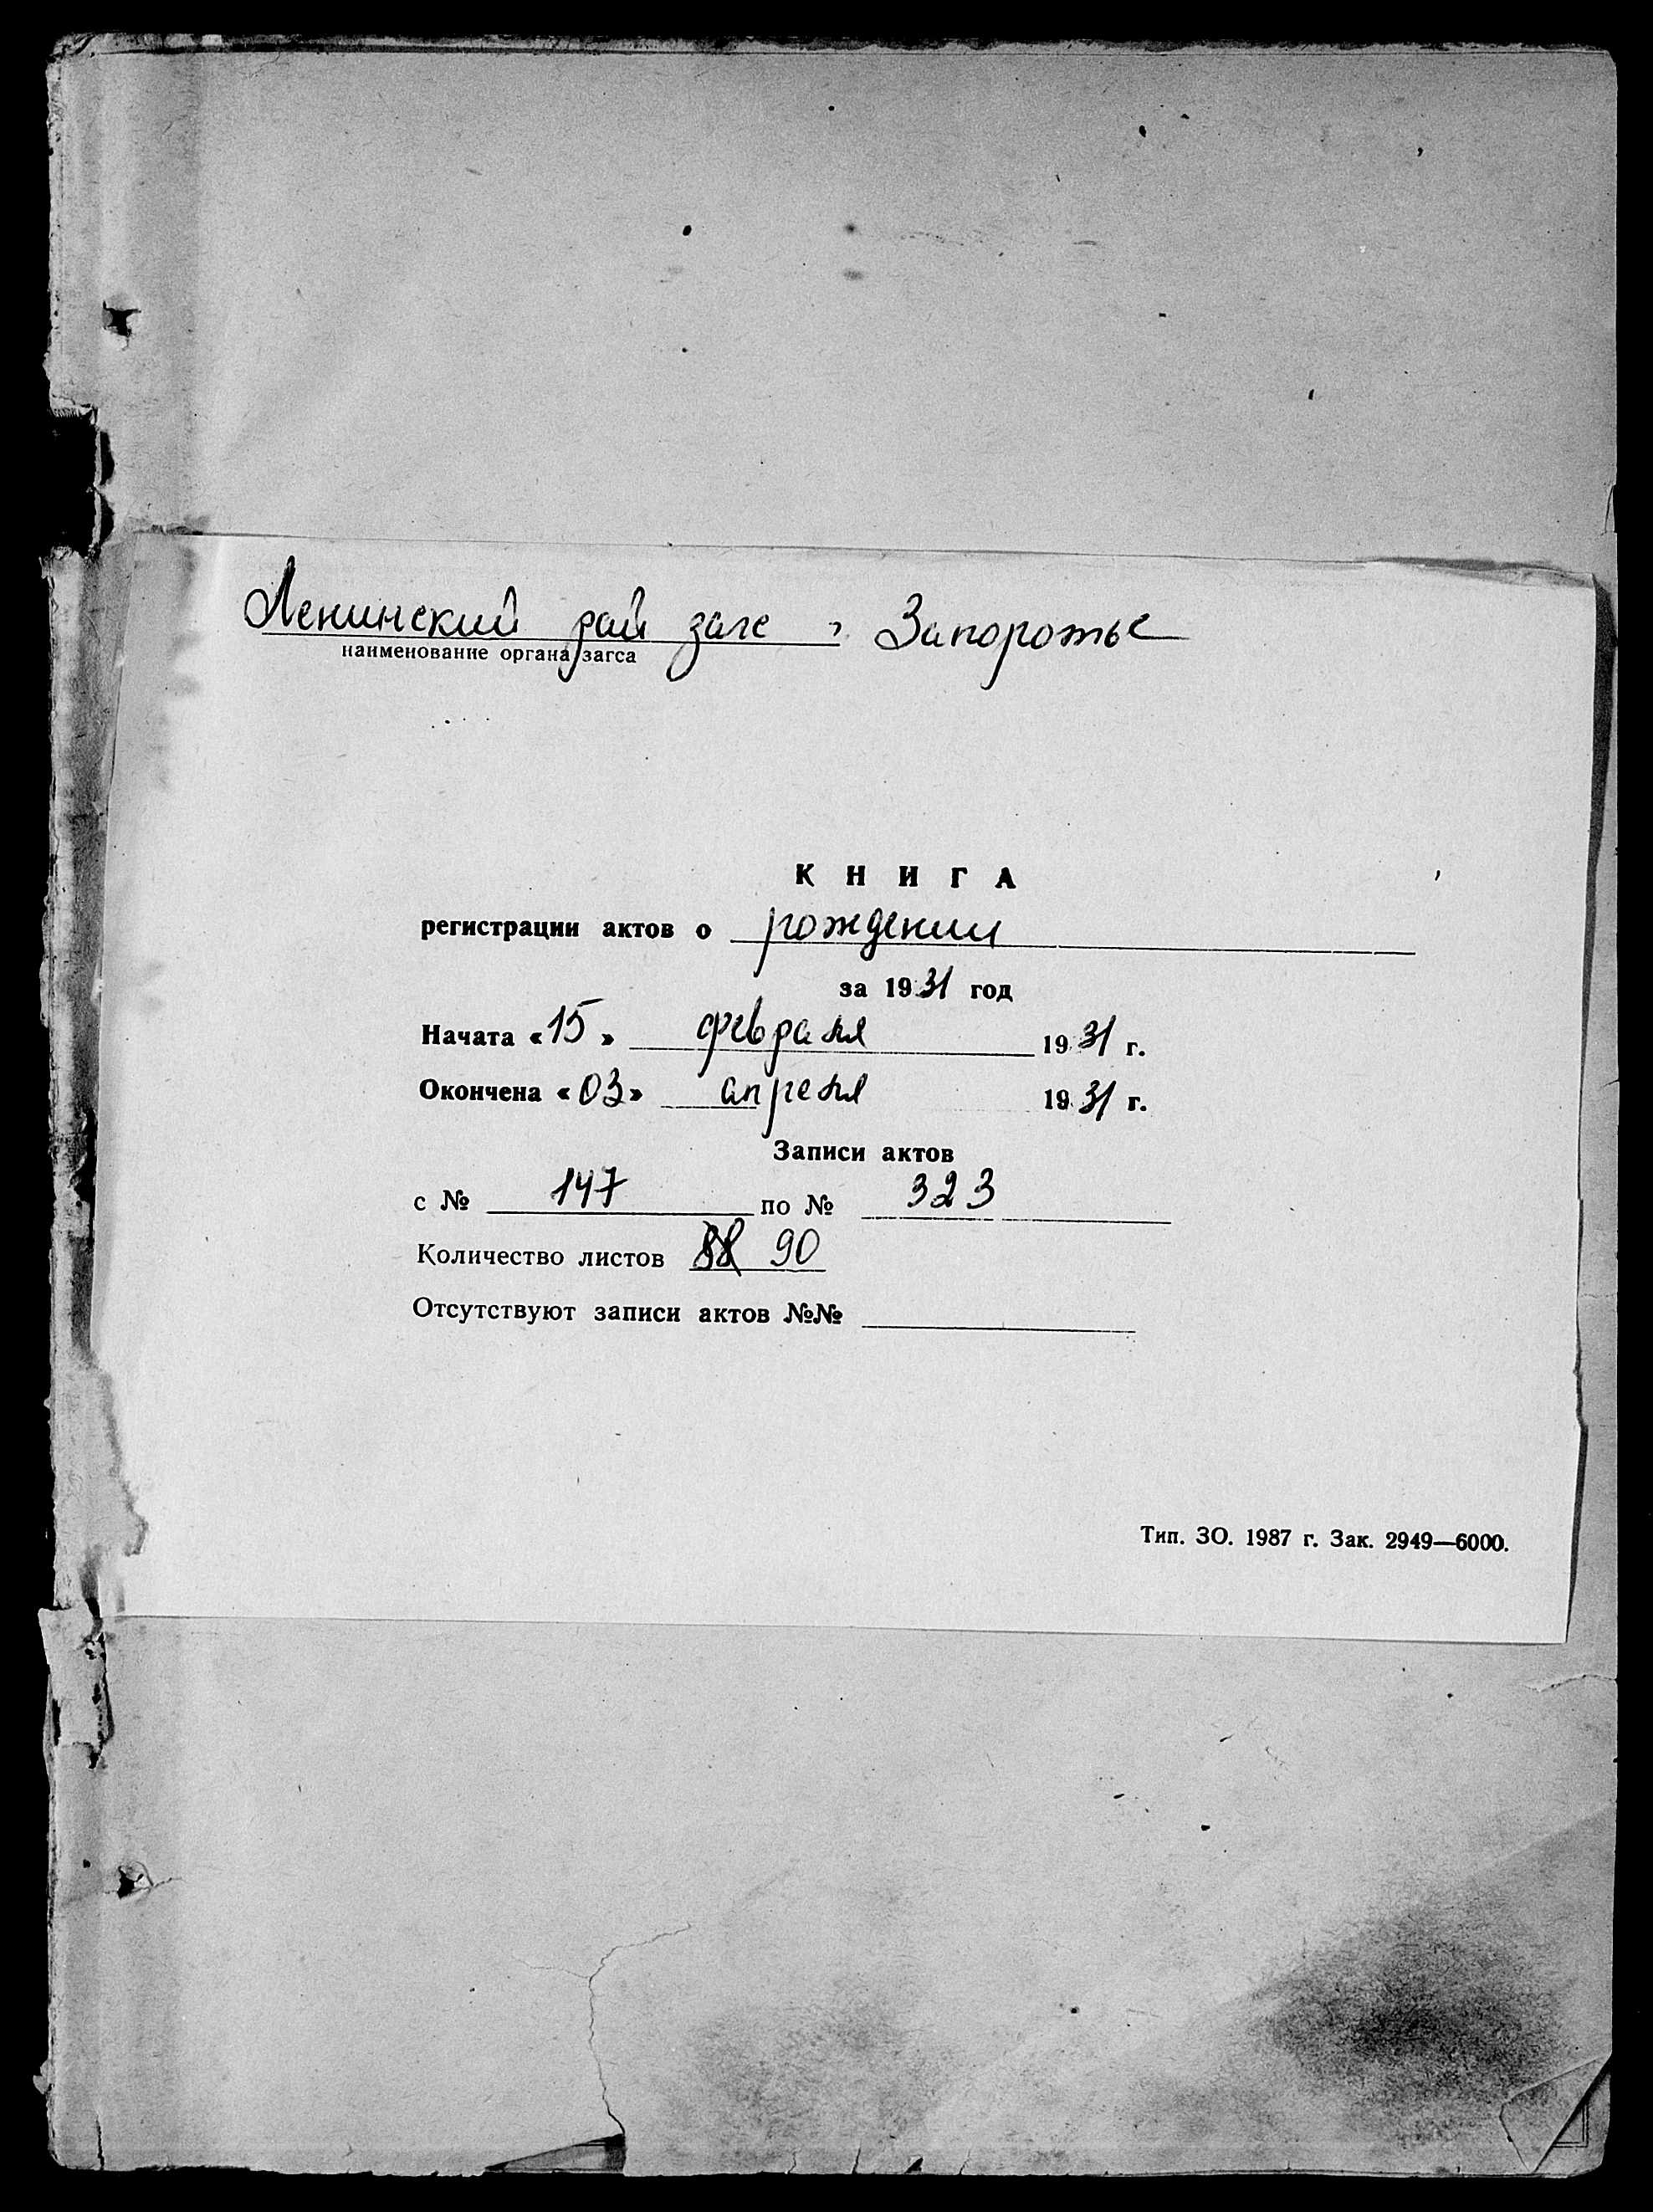 Ленинский рай загс г. Запорожье
наименование органа загса
КНИГА
регистрации актов о рождении
за 1931 год
Начата «15» февраля 1931 г.
Окончена «03» апреля 1931 г.
Записи актов
с № 147 по № 323
Количество листов 88 90
Отсутствуют записи актов №№
Тип. ЗО. 1987 г. Зак. 2949—6000.